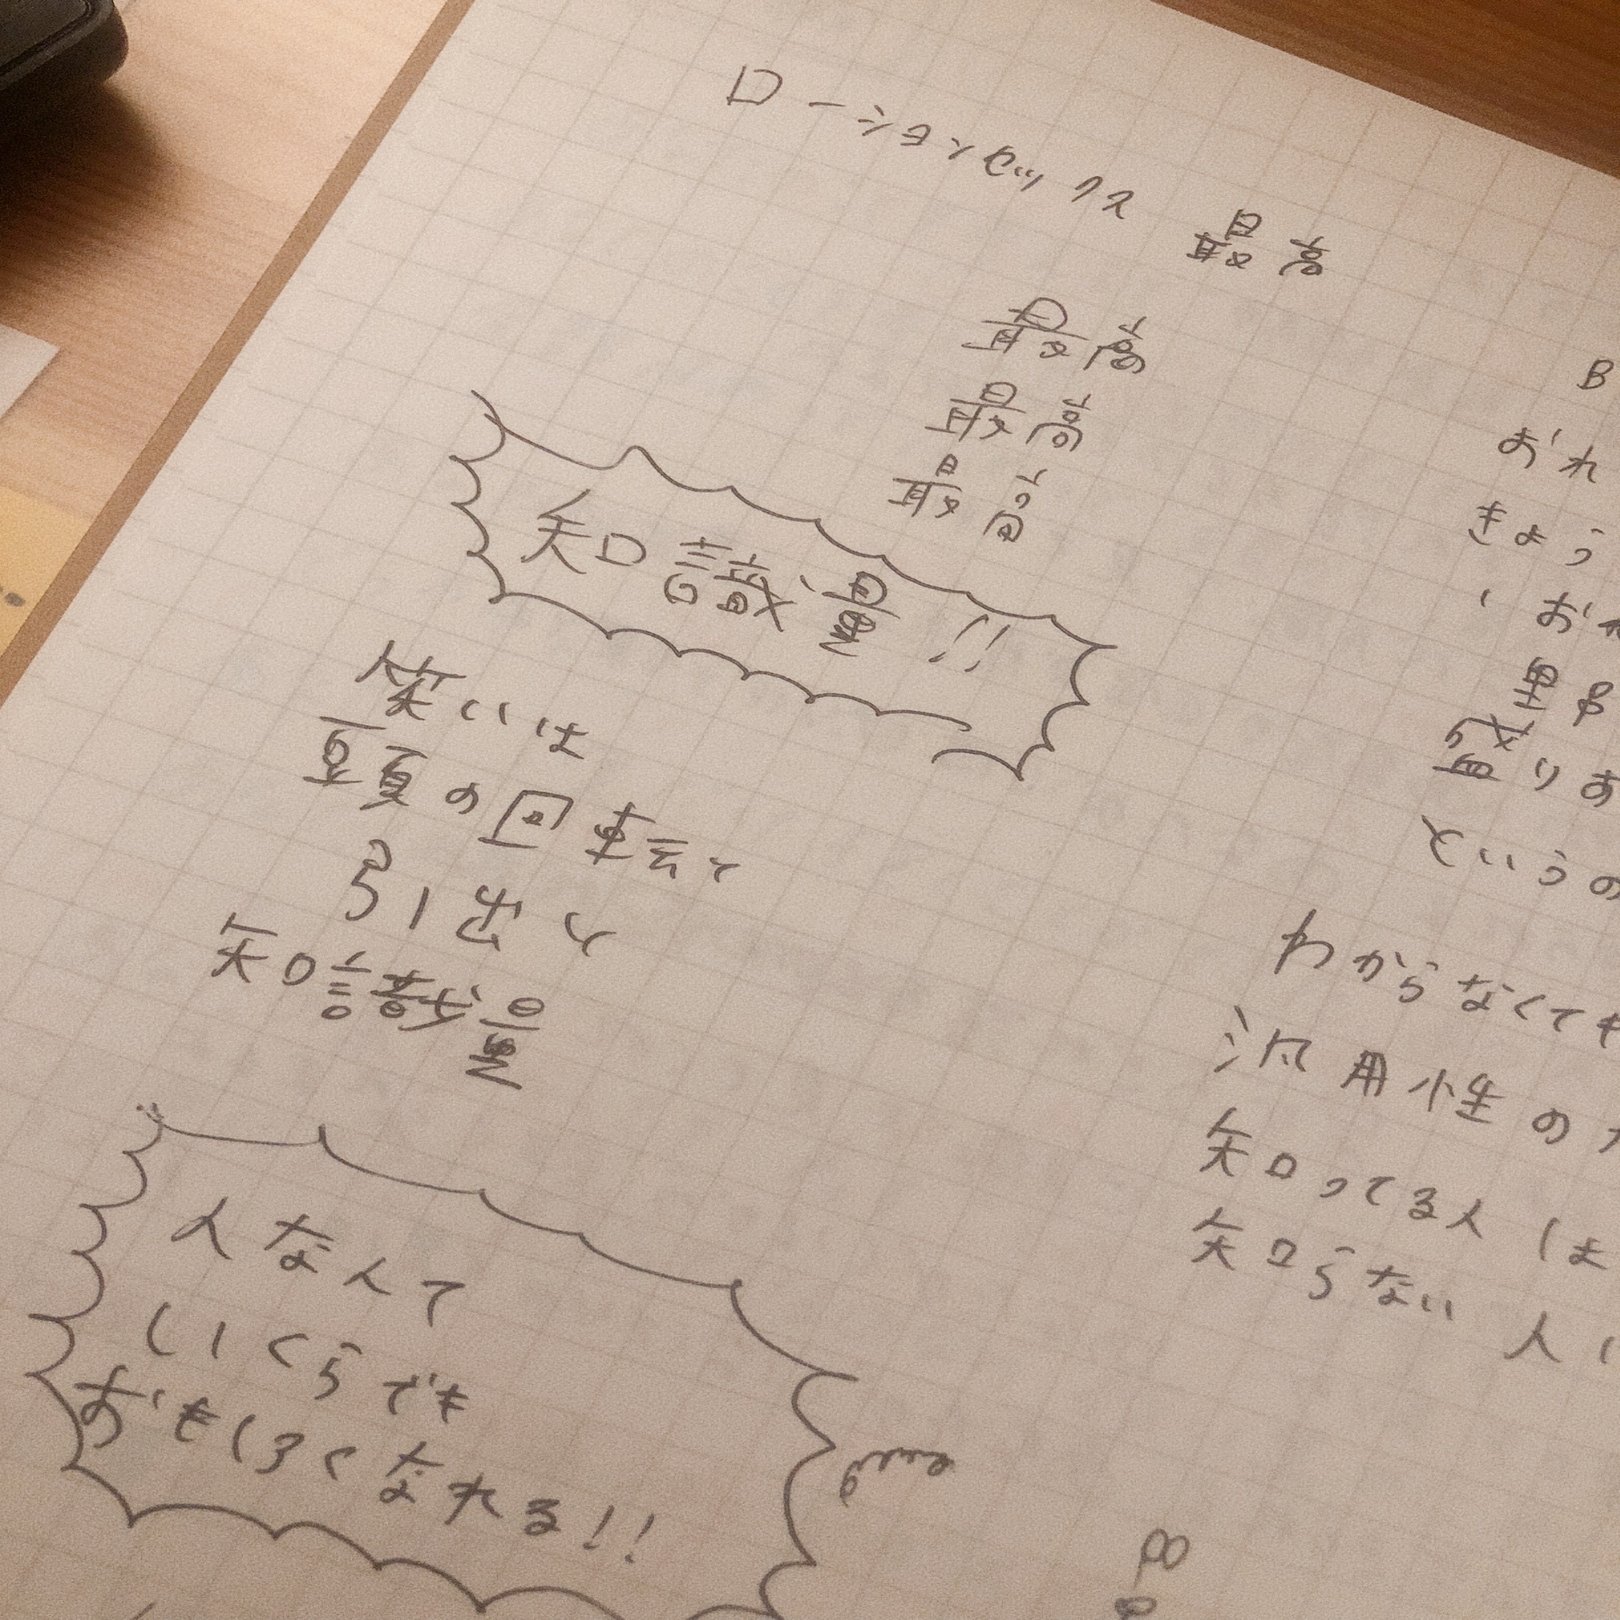 ローションセックス 最高
最高
最高
最高
知識量!!
笑いは
頭の回転で
引出し
知識量
人なんて
いくらでも
おもしろくなれる!!
B
おれ
きょう
、おれ
黒
盛りあ
というの
わからなくても
汎用性の
知ってる人は
知らない人